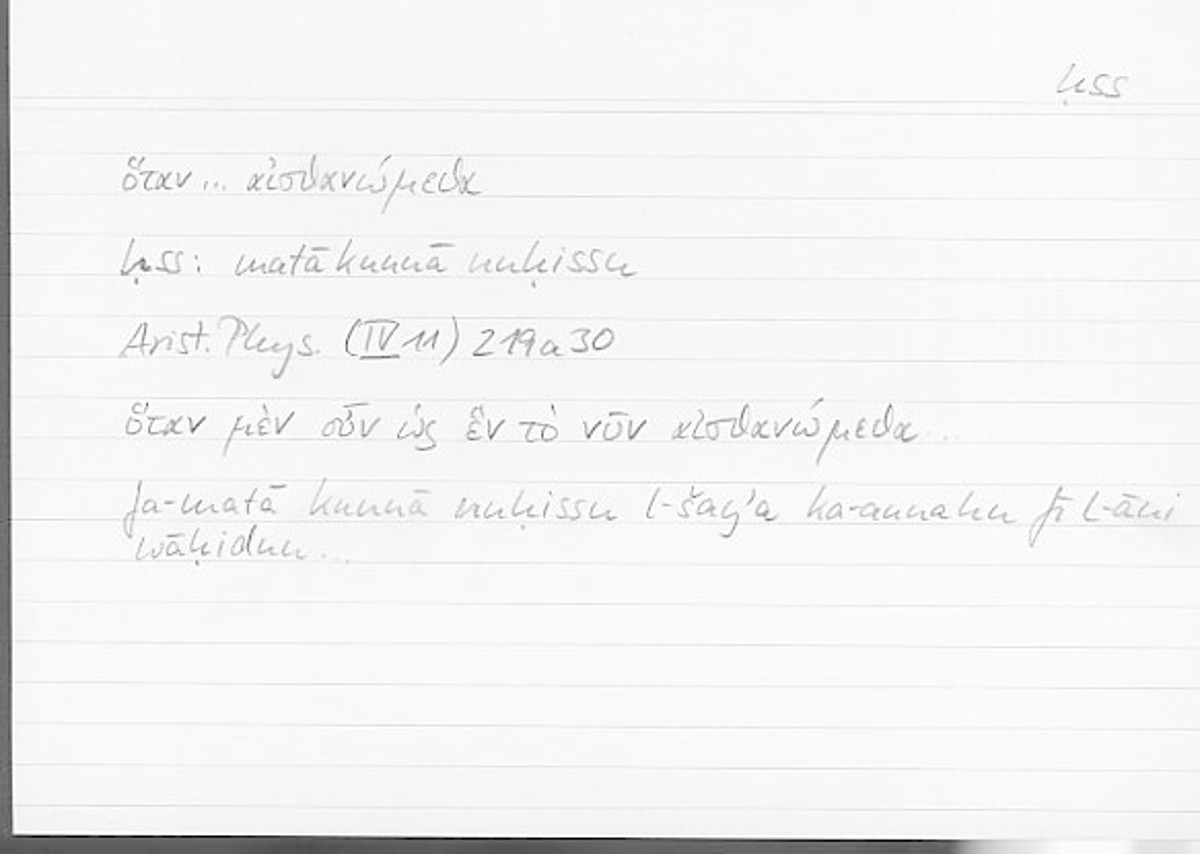 ḥss
ὅταν... αἰσθανώμεθα
ḥss: matā kunnā nuḥissu
Arist. Phys. (IV 11) 219a30
ὅταν μὲν οὖν ὡς ἓν τὸ νῦν αἰσθανώμεθα...
fa-matā kunnā nuḥissu l-šayʾa ka-annahu fī l-āni
wāḥidun...